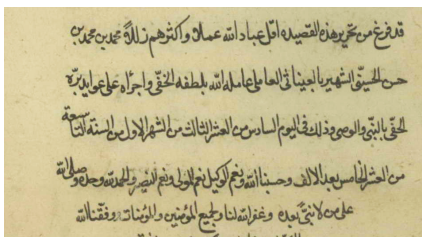 قد فرغ من تحرير هذه القصيده اقل عباد الله عملا واكثرهم زللا محمد بن محمد بن
حسن الحسيني الشهير بالعيناثي العاملي عامله الله بلطفه الخفي واجراه على عوايد برّه
الحفي بالنبي والوصي وذلك في اليوم السادس من العشر الثالث من الشهر الاول من السنة التاسعة
من العشر الخامس بعد الالف وحسبنا الله ونعم الوكيل نعم المولى ونعم النصير والحمد لله وحده وصلى الله
على من لا نبي بعده وغفر الله لنا ولجميع المؤمنين والمؤمنات ووفقنا الله